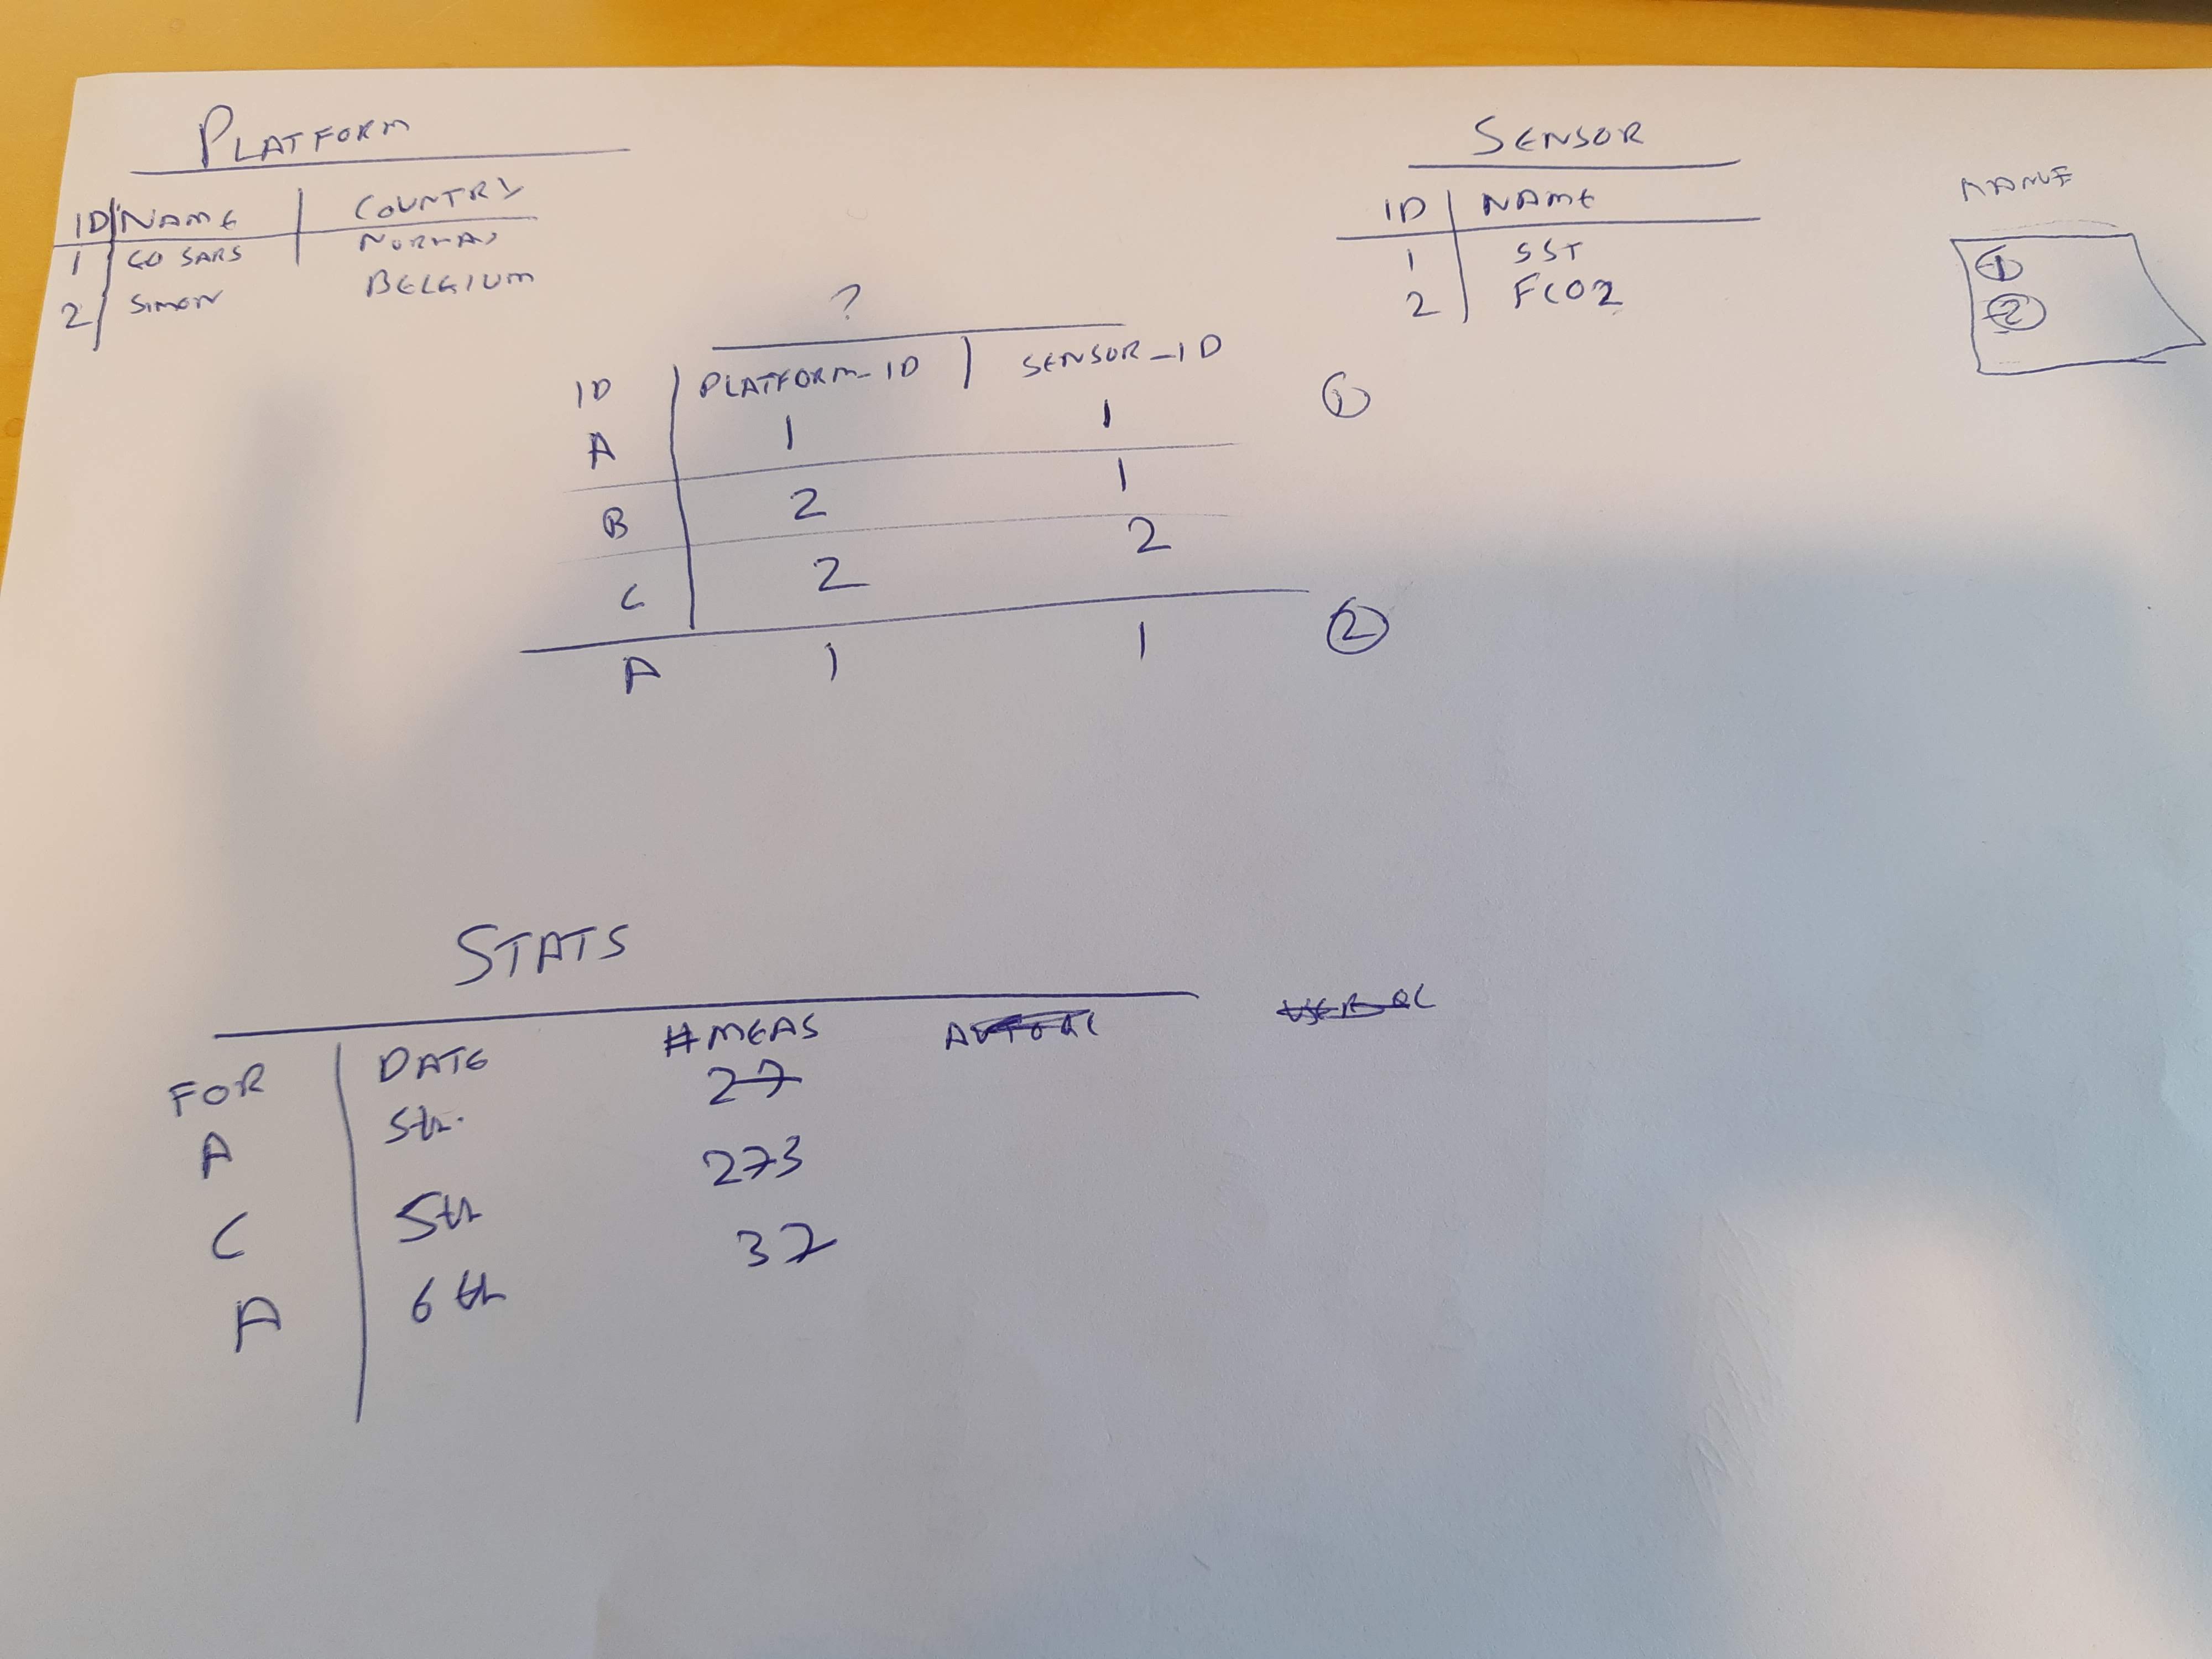 PLATFORM
ID NAME COUNTRY
1 GO SARS NORWAY
2 SIMON BELGIUM
SENSOR
ID NAME
1 SST
2 FCO2
1
2
?
ID PLATFORM_ID SENSOR_ID
A 1 1 1
B 2 1
C 2 2
A 1 1 2
STATS
FOR DATE #MEAS
A 5th. 27
C 5th 273
A 6th 37